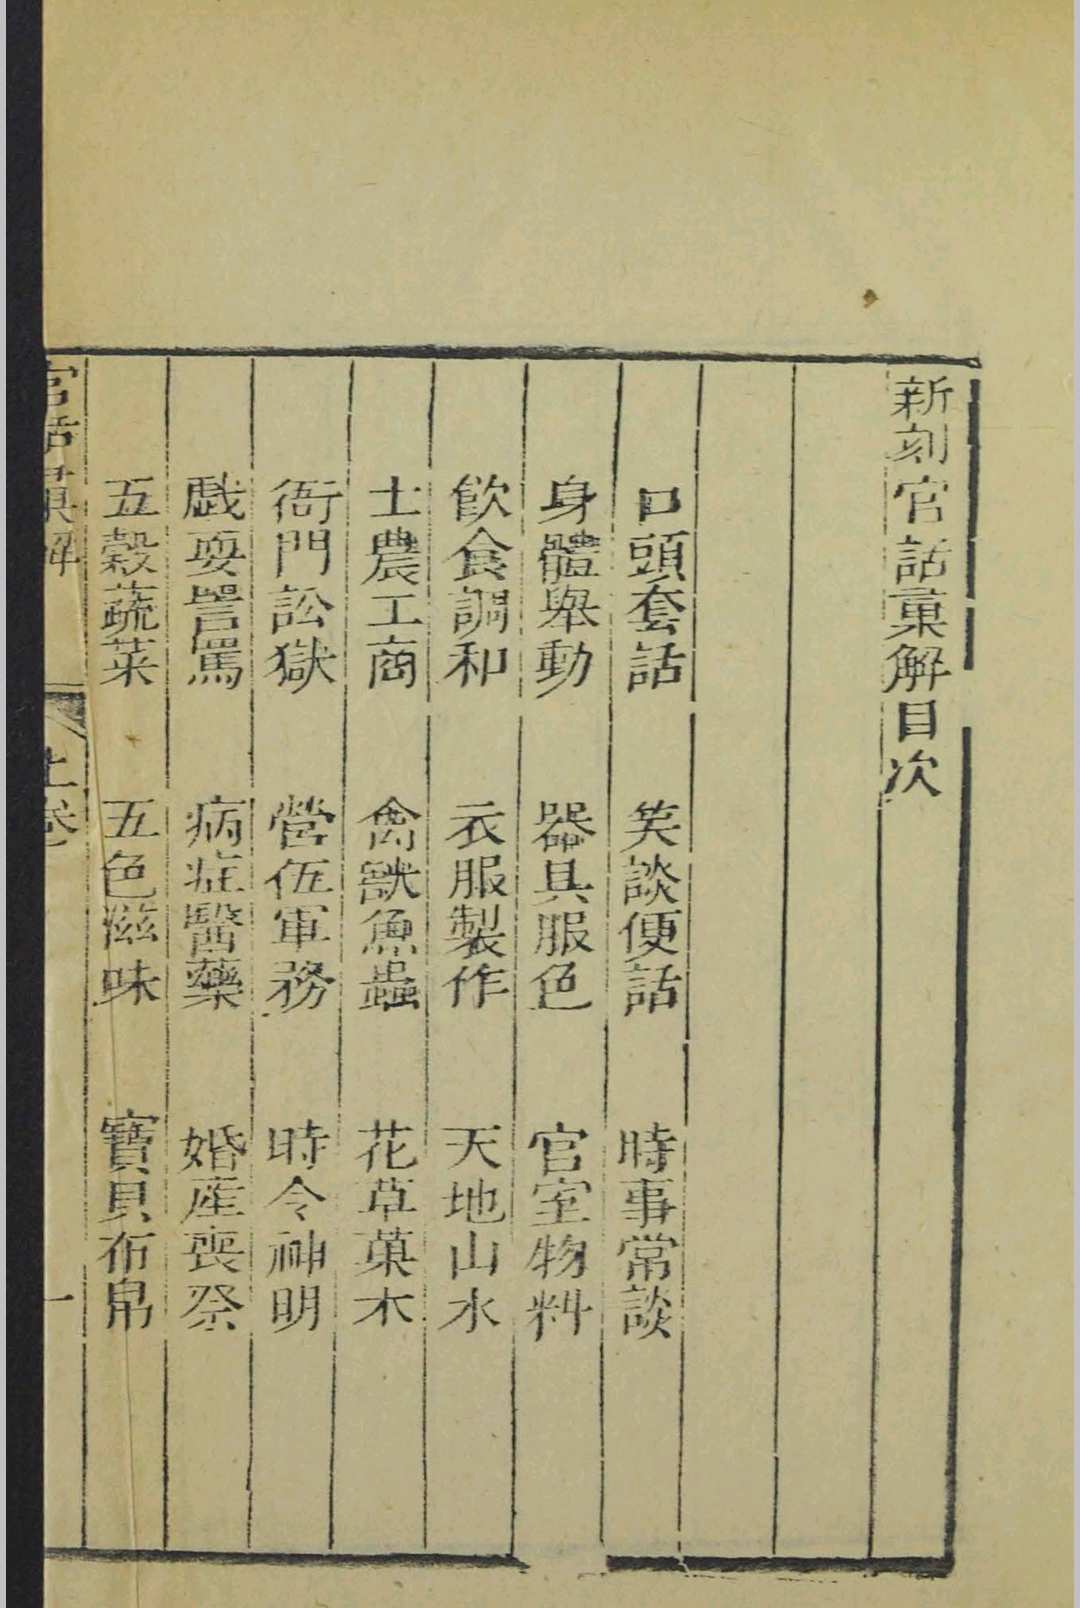 新刻官話彚解目次
口頭套話 笑談便話 時事常談
身體舉動 器具服色 官室物料
飲食調和 衣服製作 天地山水
士農工商 禽獸魚蟲 花草菓木
衙門訟獄 營伍軍務 時令神明
戲耍詈罵 病症醫藥 婚産喪祭
五穀蔬菜 五色滋味 寶貝布帛
官話彚解 上卷 一